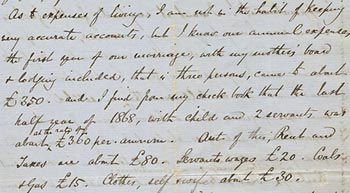 As to expenses of living, I am not in the habit of keeping
very accurate accounts, but I know our annual expenses,
the first year of our marriage, with my mothers board
& lodging included, that is three persons, came to about
£250. and I find from my check book that the last
half year of 1868, with child and 2 servants was
at the rate of
about £360 per annum. Out of this, Rent and
Taxes are about £80. Servants wages £20. Coals
& Gas £15. Clothes, self & wife about £30.